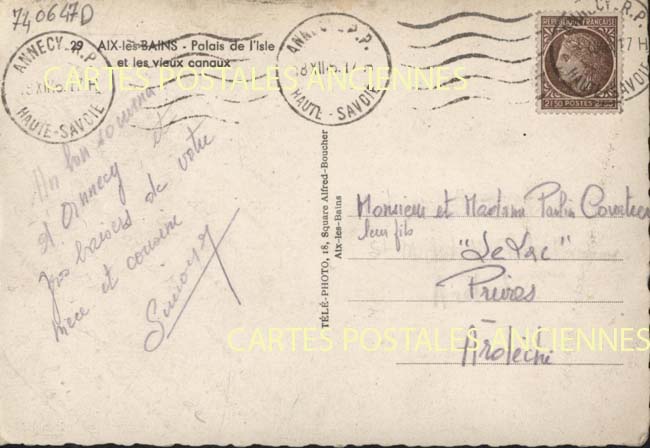 740647D
29 AIX-les-BAINS - Palais de l'Isle
et les vieux canaux
ANNECY R.P.
HAUTE-SAVOIE
ANNECY R.P.
HAUTE-SAVOIE
ANNECY-R.P.
17 H
HAUTE-SAVOIE
REPUBLIQUE FRANÇAISE
2f50 POSTES
CARTES POSTALES ANCIENNES
Un bon souvenir
d'Annecy et
gros baisers de votre
nièce et cousine
TÉLÉ-PHOTO, 18, Square Alfred-Boucher
Aix-les-Bains
Monsieur et Madame
leur fils
"Le Lac"
Privas
Ardèche
CARTES POSTALES ANCIENNES